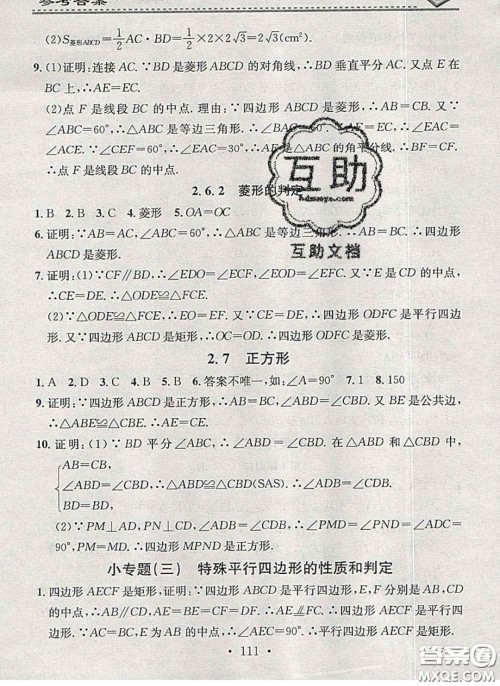 参考答案
(2)S菱形ABCD=1/2AC·BD=1/2×2×2√3=2√3(cm²).
9.(1)证明:连接AC.∵BD是菱形ABCD的对角线,∴BD垂直平分AC.又点E在
BC上,∴AE=EC.
(2)点F是线段BC的中点.理由:∵四边形ABCD是菱形,∴AB=CB.又∵
∠ABC=60°,∴△ABC是等边三角形.∴∠BAC=60°.∵AE=EC,∴∠EAC=
∠ACE.∵∠CEF=60°,∴∠EAC=30°.∴AF是△ABC的角平分线.∴BF=CF.
∴点F是线段BC的中点.
2.6.2 菱形的判定
1.B 2.B 3.C 4.菱形 5.OA=OC
6.证明:∵AB=AC,∠ABC=60°,∴△ABC是等边三角形.∴AB=BC.∴四边形
ABCD是菱形.
7.证明:(1)∵CF∥BD,∴∠EDO=∠ECF,∠EOD=∠EFC.又∵E是CD的中点,
∴CE=DE.∴△ODE≌△FCE.
(2)∵△ODE≌△FCE,∴EO=EF.又∵CE=DE,∴四边形ODFC是平行四边
形.∵四边形ABCD是矩形,∴OC=OD.∴四边形ODFC是菱形.
2.7 正方形
1.A 2.D 3.C 4.B 5.C 6.答案不唯一,如:∠A=90° 7.1 8.150
9.证明:∵四边形ABCD是正方形,∴AB=BC,∠ABE=∠CBE.又BE是公共边,
∴△ABE≌△CBE.∴AE=CE.
10.证明:(1)∵BD平分∠ABC,∴∠ABD=∠CBD.在△ABD和△CBD中,
AB=CB,
∠ABD=∠CBD,∴△ABD≌△CBD(SAS).∴∠ADB=∠CDB.
BD=BD,
(2)∵PM⊥AD,PN⊥CD,∴∠PMD=∠PND=90°.又∠ADC=90°,∠ADB=
∠CDB,∴PN=PM=MD.∴四边形MPND是正方形.
小专题(三) 特殊平行四边形的性质和判定
1.四边形AECF是矩形,证明:∵四边形ABCD是平行四边形,E,F分别是AB,CD
的中点,∴AE=CF,AE∥CF.∴四边形AECF是平行四边形.∵AC=BC,E是
AB的中点,∴CE⊥AE.∴∠AEC=90°.∴四边形AECF是矩形.
·111·
互助
互助文档
答案圈
MXQE.COM